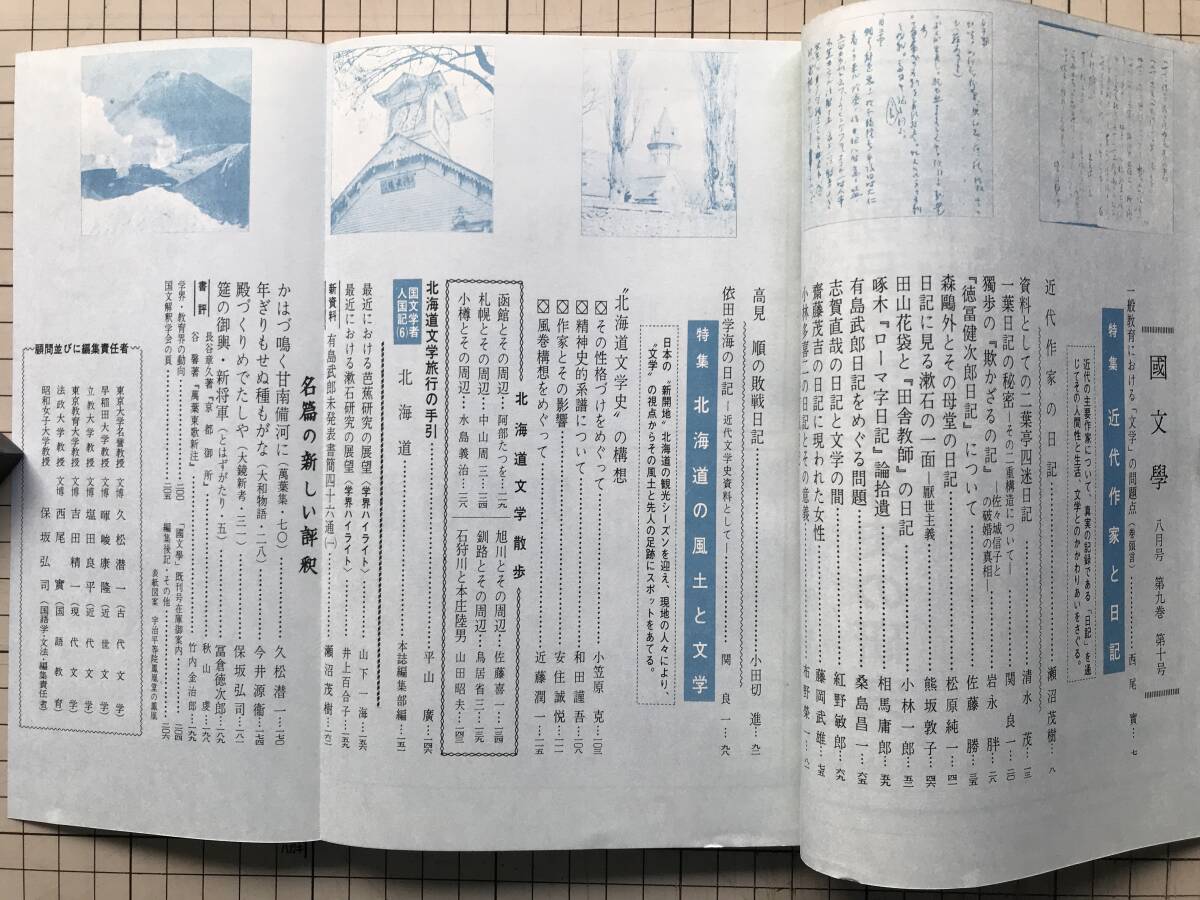 國文學 八月号 第九巻 第十号
一般教育における「文学」の問題点(巻頭言)…………西尾 實…七
特集 近代作家と日記
近代の主要作家について、真実の記録である「日記」を通
じてその人間性と生活、文学とのかかわりあいをさぐる。
近代作家の日記 瀬沼茂樹…八
資料としての二葉亭四迷日記 清水 茂…三
一葉日記の秘密―その二重構造について― 関 良一…二〇
獨歩の『欺かざるの記』―佐々城信子との破婚の真相 岩永 胖…二六
『徳冨健次郎日記』について 佐藤 勝…三五
森鷗外とその母堂の日記 松原純一…四一
日記に見る漱石の一面―厭世主義― 熊坂敦子…四六
田山花袋と『田舎教師』の日記 小林一郎…五二
啄木『ローマ字日記』論拾遺 相馬庸郎…五九
有島武郎日記をめぐる問題 桑島昌一…六五
志賀直哉の日記と文学の間 紅野敏郎…六九
齋藤茂吉の日記に現われた女性 藤岡武雄…七五
小林多喜二の日記とその意義 布野榮一…八一
高見 順の敗戦日記 小田切 進…九一
依田学海の日記―近代文学史資料として― 関 良一…九八
特集 北海道の風土と文学
日本の〝新開地〟北海道の観光シーズンを迎え、現地の人々により、
〝文学〟の視点からその風土と先人の足跡にスポットをあてる。
〝北海道文学史〟の構想
その性格づけをめぐって 小笠原 克…一〇三
精神史的系譜について 和田謹吾…一〇八
作家とその影響 安住誠悦…一一一
風巻構想をめぐって 近藤潤一…一一五
北海道文学散歩
函館とその周辺…阿部たつを…一二九
旭川とその周辺…佐藤喜一…一三四
札幌とその周辺…中山周三…一三四
釧路とその周辺…鳥居省三…一三九
小樽とその周辺…水島義治…一三八
石狩川と本庄陸男 山田昭夫…一四三
北海道文学旅行の手引 平山 廣…一四六
国文学者人国記(6) 北海道 本誌編集部編…一五一
最近における芭蕉研究の展望(学界ハイライト) 山下一海…一五六
最近における漱石研究の展望(学界ハイライト) 井上百合子…一五九
新資料 有島武郎未発表書簡四十六通(一) 瀬沼茂樹…一六二
名篇の新しい評釈
かはづ鳴く甘南備河に(萬葉集・七〇) 久松潜一…一七〇
年ぎりもせぬ種もがな(大和物語・二八) 今井源衛…一七四
殿づくりめでたしや(大鏡新考・三一) 保坂弘司…一八一
筵の御輿・新将軍(とはずがたり・五) 冨倉徳次郎…一八九
書評
長谷章久著『京都御所』 秋山 虔…一九八
谷 馨著『萬葉東歌新注』 竹内金治郎…一九九
学界・教育界の動向…二〇〇
「國文學」既刊号在庫御案内…二〇四
国文解釈学会の頁…二〇五
編集後記・その他…二〇六
表紙図案 宇治平等院鳳凰堂の鳳凰
顧問並びに編集責任者
東京大学名誉教授 文博 久松潜一(古代文学)
早稲田大学教授 文博 暉峻康隆(近世文学)
立教大学教授 文博 塩田良平(近代文学)
東京教育大学教授 吉田精一(現代文学)
法政大学教授 文博 西尾 實(国語教育)
昭和女子大学教授 保坂弘司(国語学・文法・編集責任者)